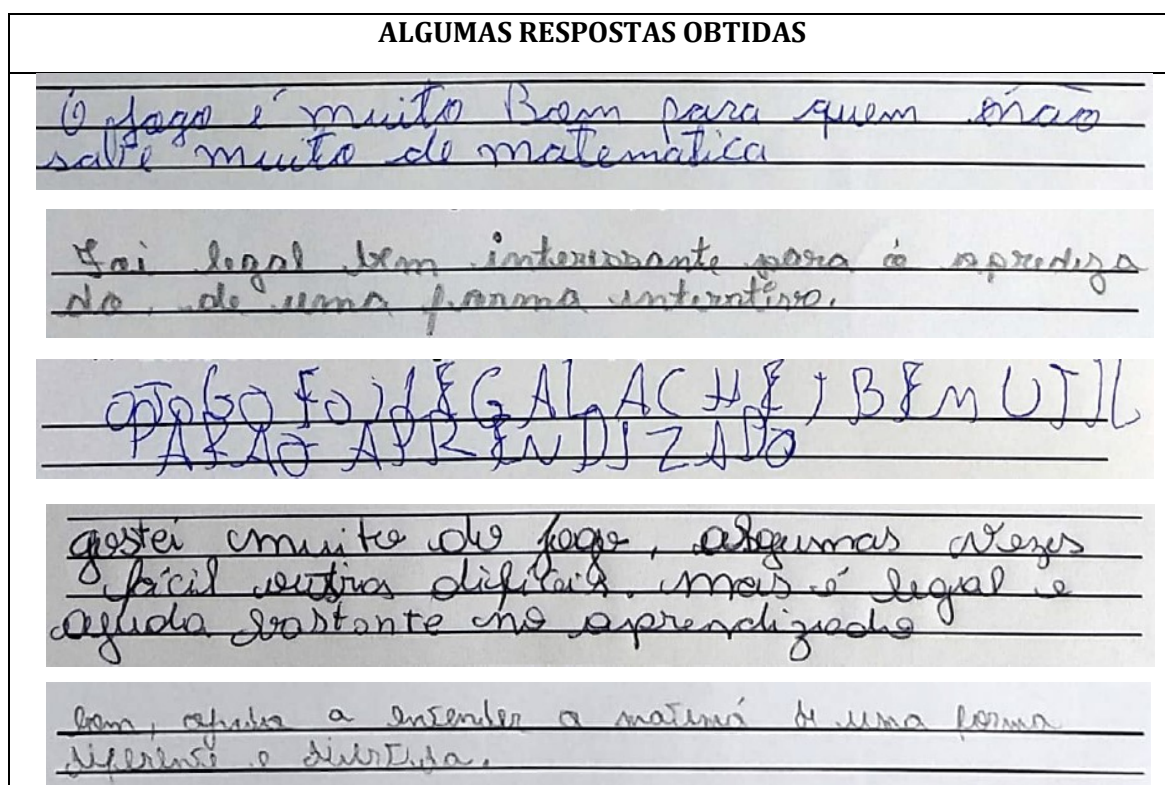 ALGUMAS RESPOSTAS OBTIDAS
O jogo é muito Bom para quem não
sabe muito de matematica
Foi legal bem interessante para o aprediza
do, de uma forma interativo.
O JOGO FOI LEGAL ACHEI BEM UTIL
PARA O APRENDIZADO
gostei muito do jogo, algumas vezes
fácil outras dificeis. mas é legal e
ajuda bastante no aprendizado
bom, ajuda a entender a de uma forma
diferente e divertida.